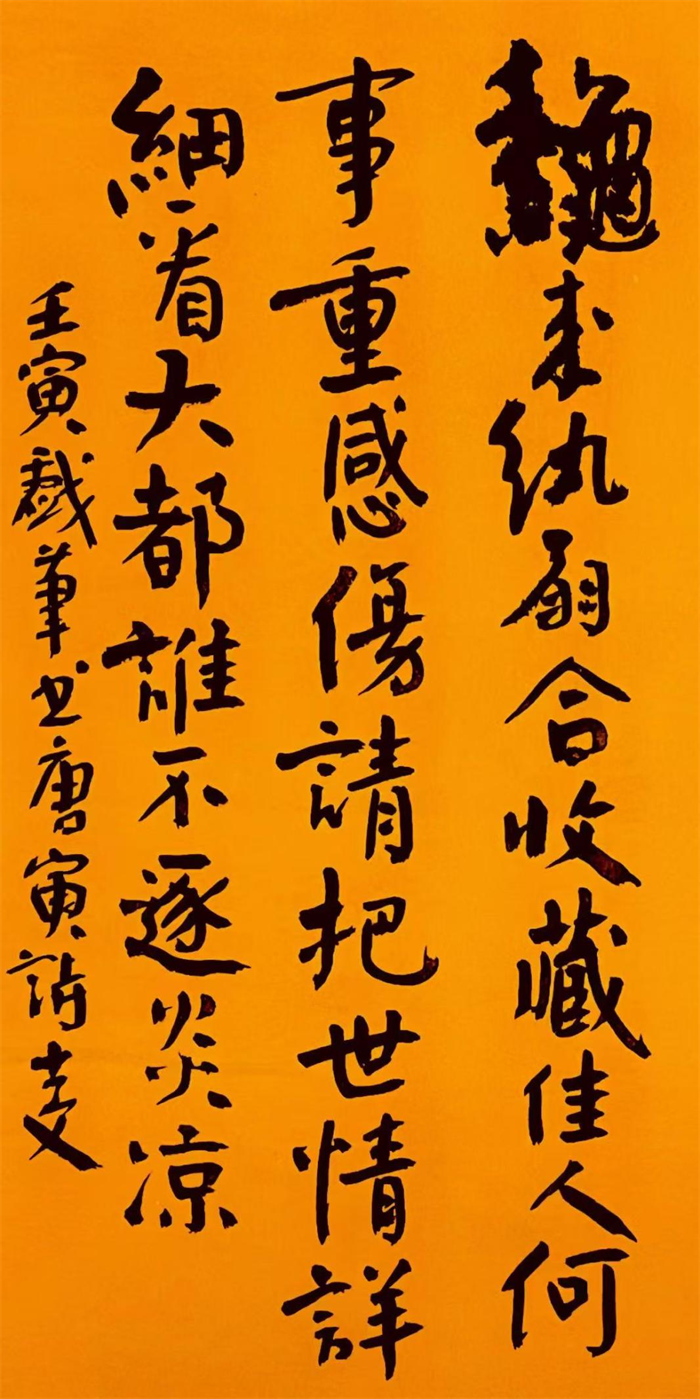 龝来紈扇合收藏佳人何
事重感傷請把世情詳
細看大都誰不逐炎凉
壬寅戯筆书唐寅詩